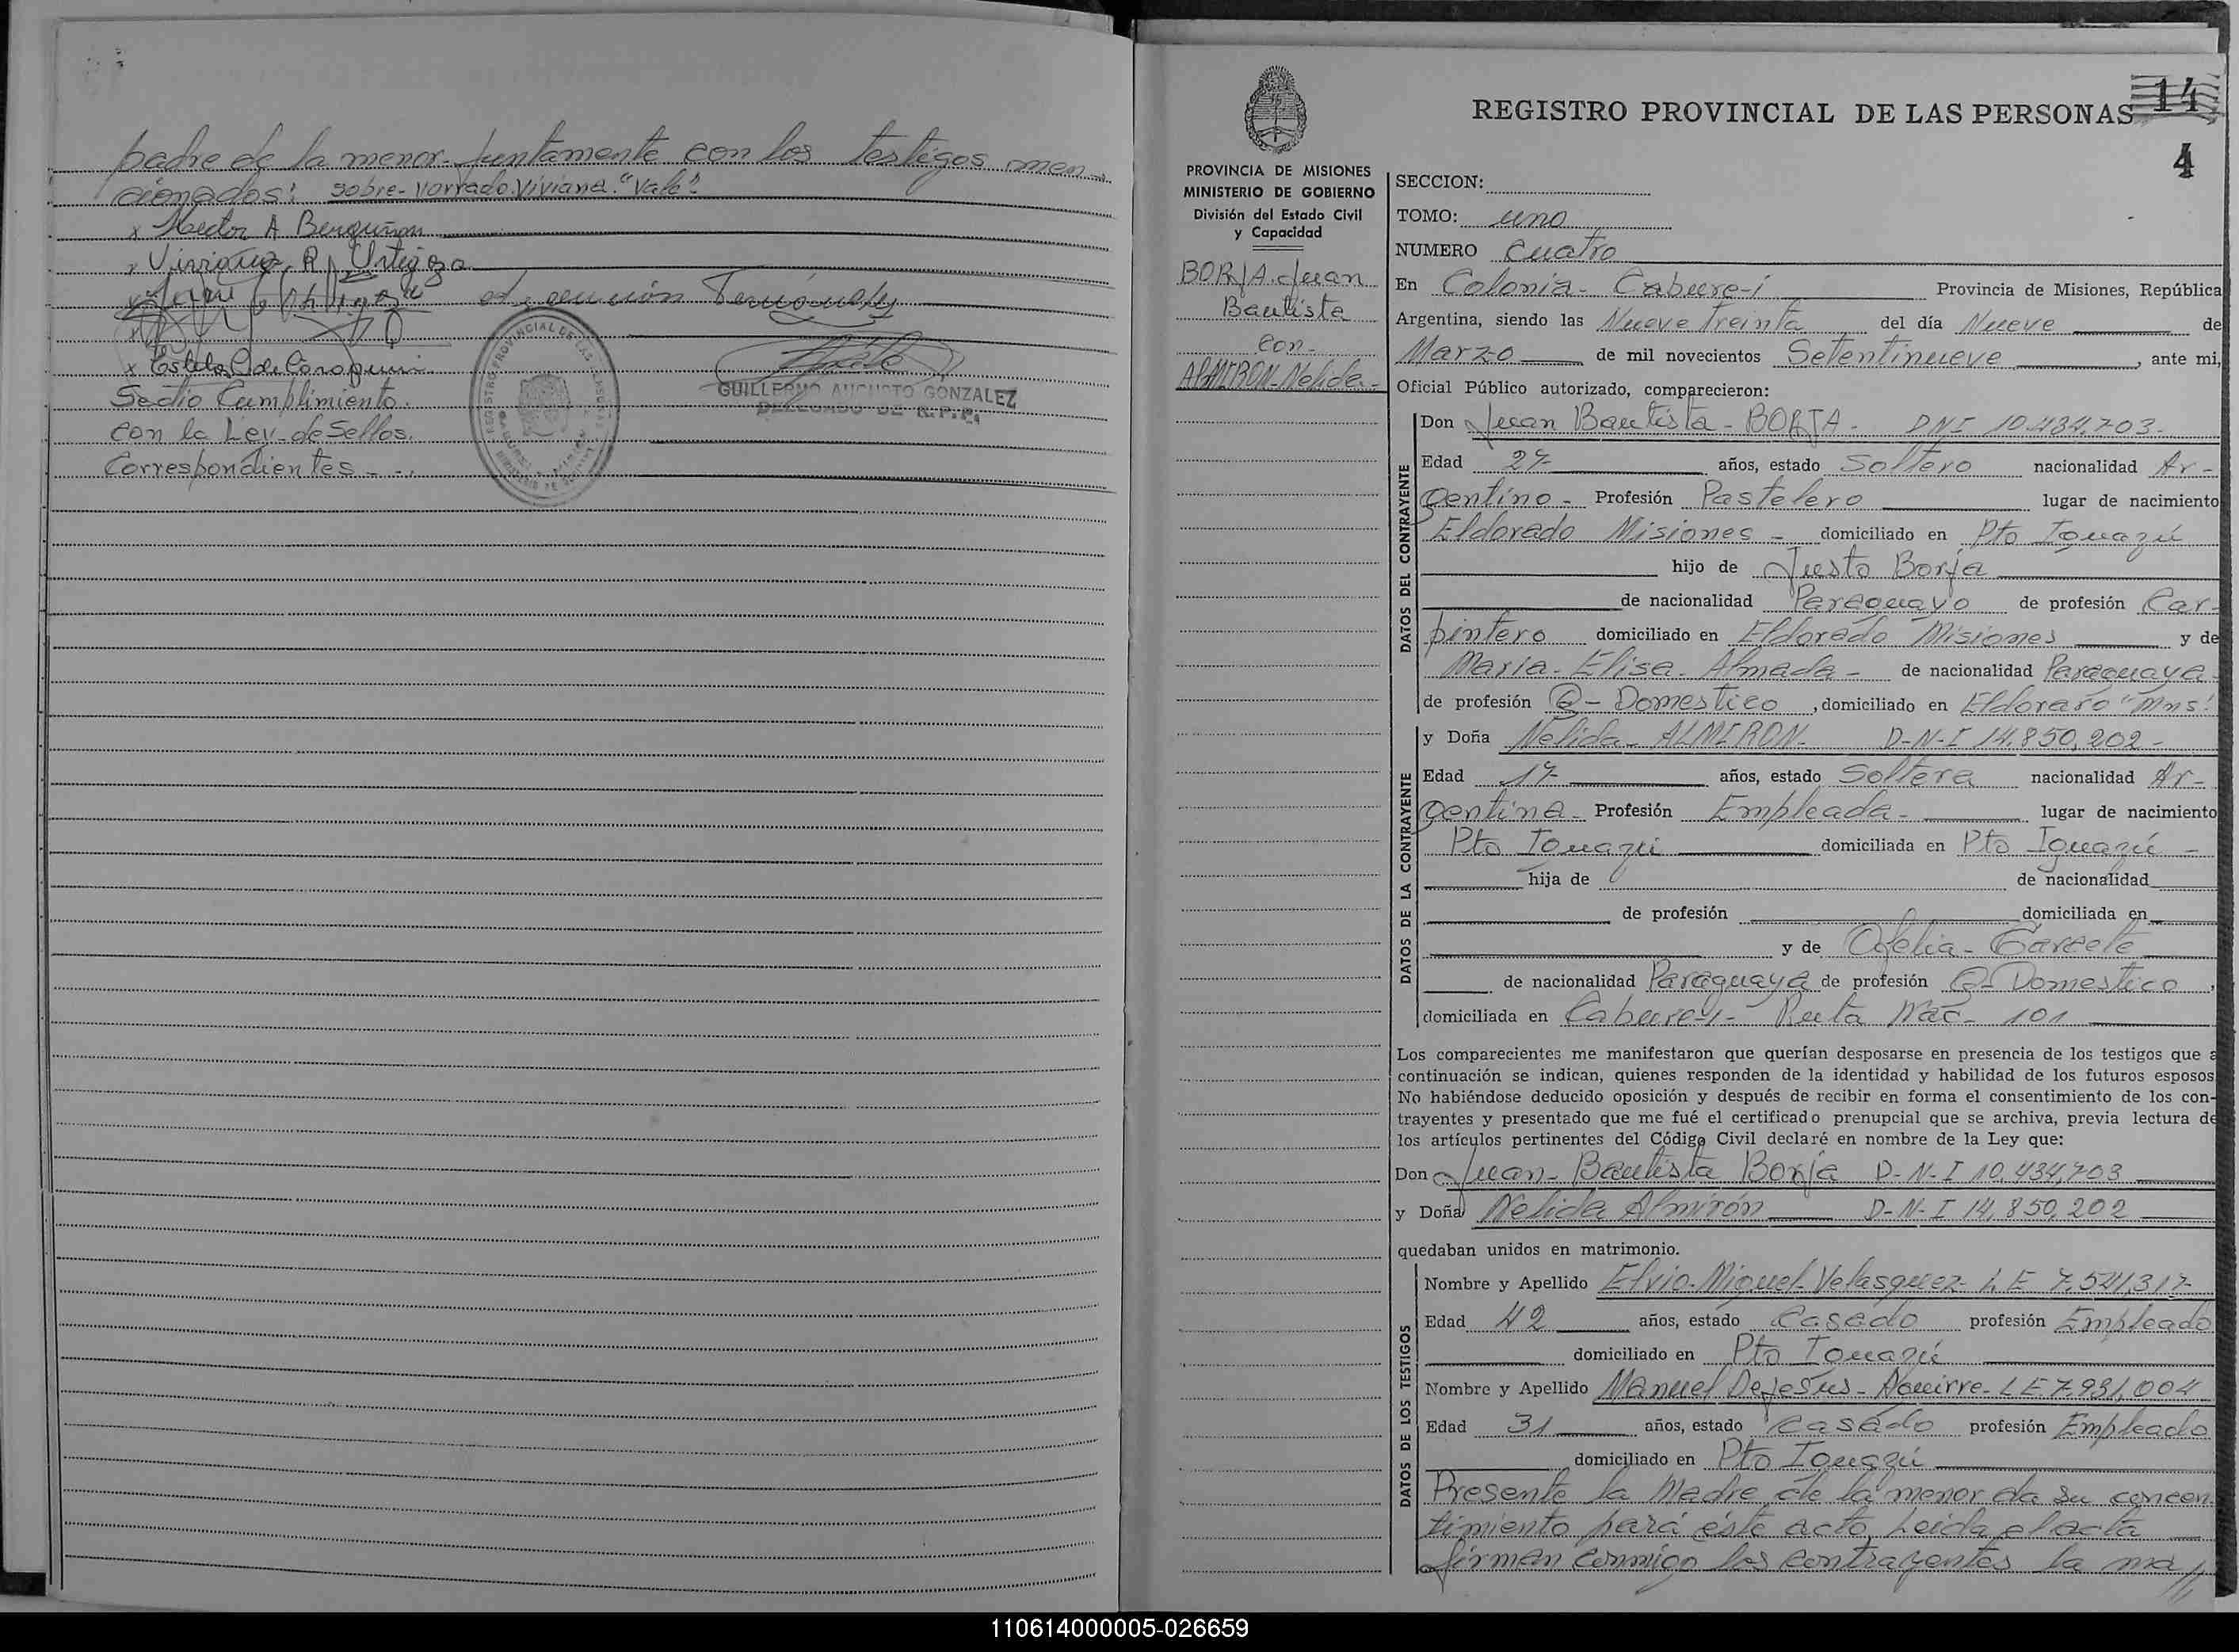 padre de la menor. Juntamente con los testigos men-
cionados: sobre-vorrado. Viviana. "Vale".
x Hector A Benguinon
x Viviana, R, Ortigoza
Asuncion
x Estela
Sedio Cumplimiento.
con la Ley-de Sellos.
Correspondientes - -.
REGISTRO PROVINCIAL DE LAS
GUILLERMO AUGUSTO GONZALEZ
DELEGADO DE R.P.P.
14
REGISTRO PROVINCIAL DE LAS PERSONAS
4
PROVINCIA DE MISIONES
MINISTERIO DE GOBIERNO
División del Estado Civil
y Capacidad
BORJA. Juan
Bautista
con-
ALMIRON-Nelida.-
SECCION:
TOMO: uno
NUMERO cuatro
En Colonia- Cabure-i Provincia de Misiones, República
Argentina, siendo las Nueve treinta del día Nueve de
Marzo de mil novecientos Setentinueve, ante mi,
Oficial Público autorizado, comparecieron:
DATOS DEL CONTRAYENTE
Don Juan Bautista - BORJA - DNI 10.434.703.
Edad 27- años, estado Soltero nacionalidad Ar-
gentino - Profesión Pastelero lugar de nacimiento
Eldorado Misiones - domiciliado en Pto Iguazú
hijo de Justo Borja
de nacionalidad Paraguayo de profesión Car-
pintero domiciliado en Eldorado Misiones y de
Maria- Elisa- Almada - de nacionalidad Paraguaya-
de profesión Q- Domestico, domiciliado en Eldoraro "Mns"
DATOS DE LA CONTRAYENTE
y Doña Nelida- ALMIRON- D-N-I 14.850,202-
Edad 17- años, estado Soltera nacionalidad Ar-
gentina- Profesión Empleada- lugar de nacimiento
Pto Iguazú domiciliada en Pto Iguazú -
hija de de nacionalidad
de profesión domiciliada en
y de Ofelia- Garcete
de nacionalidad Paraguaya de profesión Q- Domestico,
domiciliada en Cabure-i- Ruta Nac- 101
Los comparecientes me manifestaron que querían desposarse en presencia de los testigos que a
continuación se indican, quienes responden de la identidad y habilidad de los futuros esposos
No habiéndose deducido oposición y después de recibir en forma el consentimiento de los con-
trayentes y presentado que me fué el certificado prenupcial que se archiva, previa lectura de
los artículos pertinentes del Código Civil declaré en nombre de la Ley que:
Don Juan- Bautista Borja D-N-I 10,434,703
y Doña Nelida Almirón D-N-I 14,850,202
quedaban unidos en matrimonio.
DATOS DE LOS TESTIGOS
Nombre y Apellido Elvio-Miguel-Velasquez- L E 7.541,317-
Edad 42 años, estado Casado profesión Empleado
domiciliado en Pto Iguazú
Nombre y Apellido Manuel DeJesus- Aguirre- L E 7.931,004
Edad 31 años, estado Casado profesión Empleado
domiciliado en Pto Iguazú
Presente la Madre de la menor da su concen
timiento pará éste acto, Leida el acta
firman conmigo los contrayentes la ma //
110614000005-026659